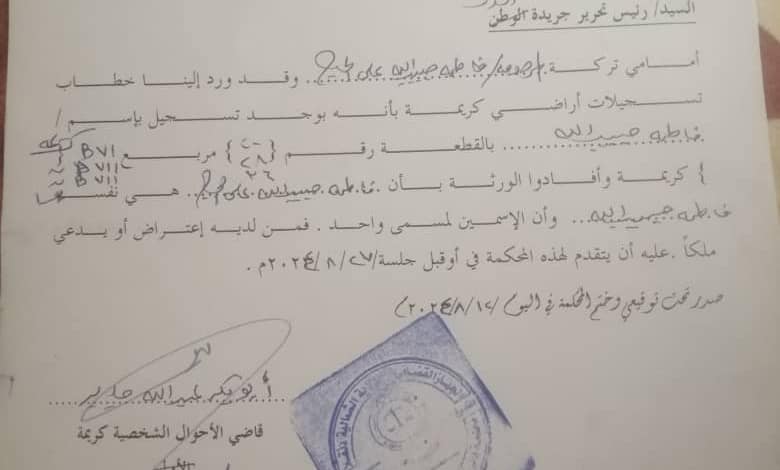 السيد/ رئيس تحرير جريدة الوطن
أمامي تركة المرحومة/ فاطمة حبيب الله علي .. وقد ورد إلينا خطاب
تسجيلات أراضي كريمة بأنه يوجد تسجيل بإسم /
فاطمه حبيب الله ........ بالقطعة رقم { ٢٨ } مربع B VI كريمه
٢٦ B VII
B VII
{ كريمة وأفادوا الورثة بأن . فاطمه حبيب الله علي .. هي نفسها
فاطمه حبيب الله ... وأن الإسمين لمسمى واحد . فمن لديه إعتراض أو يدعي
ملكاً . عليه أن يتقدم لهذه المحكمة في أو قبل جلسة/ ٢٧/ ٨ /٢٠٢٤م .
صدر تحت توقيعي وختم المحكمة في اليوم /١٢/ ٨/ ٢٠٢٤م
أبوبكر عبدالله
قاضي الأحوال الشخصية كريمة